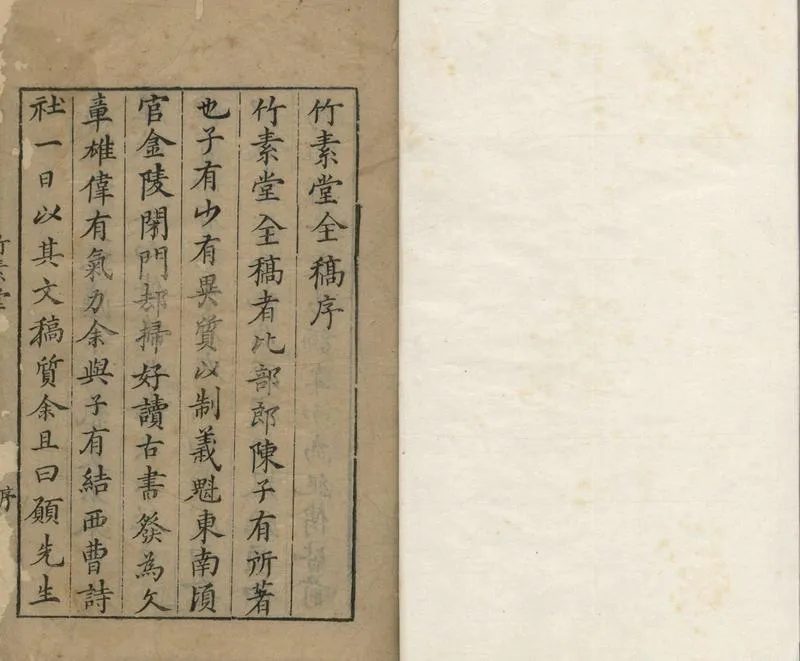 竹素堂全稿序
竹素堂全稿者比部郎陳子有所著
也子有少有異質以制義魁東南頃
官金陵閑門却掃好讀古書發為文
章雄偉有氣力余與子有結西曹詩
社一日以其文稿質余且曰願先生
竹素堂
序